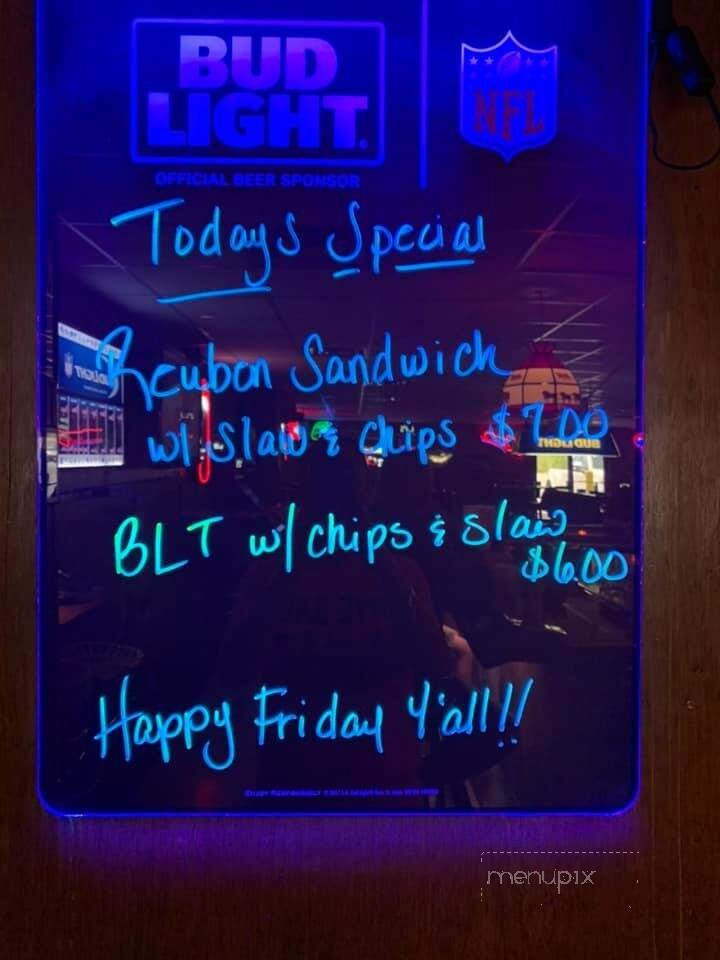 BUD
LIGHT.
NFL
OFFICIAL BEER SPONSOR
Todays Special
Reuben Sandwich
w/ Slaw & Chips $7.00
BLT w/ chips & slaw
$6.00
Happy Friday Y'all!!
menupix